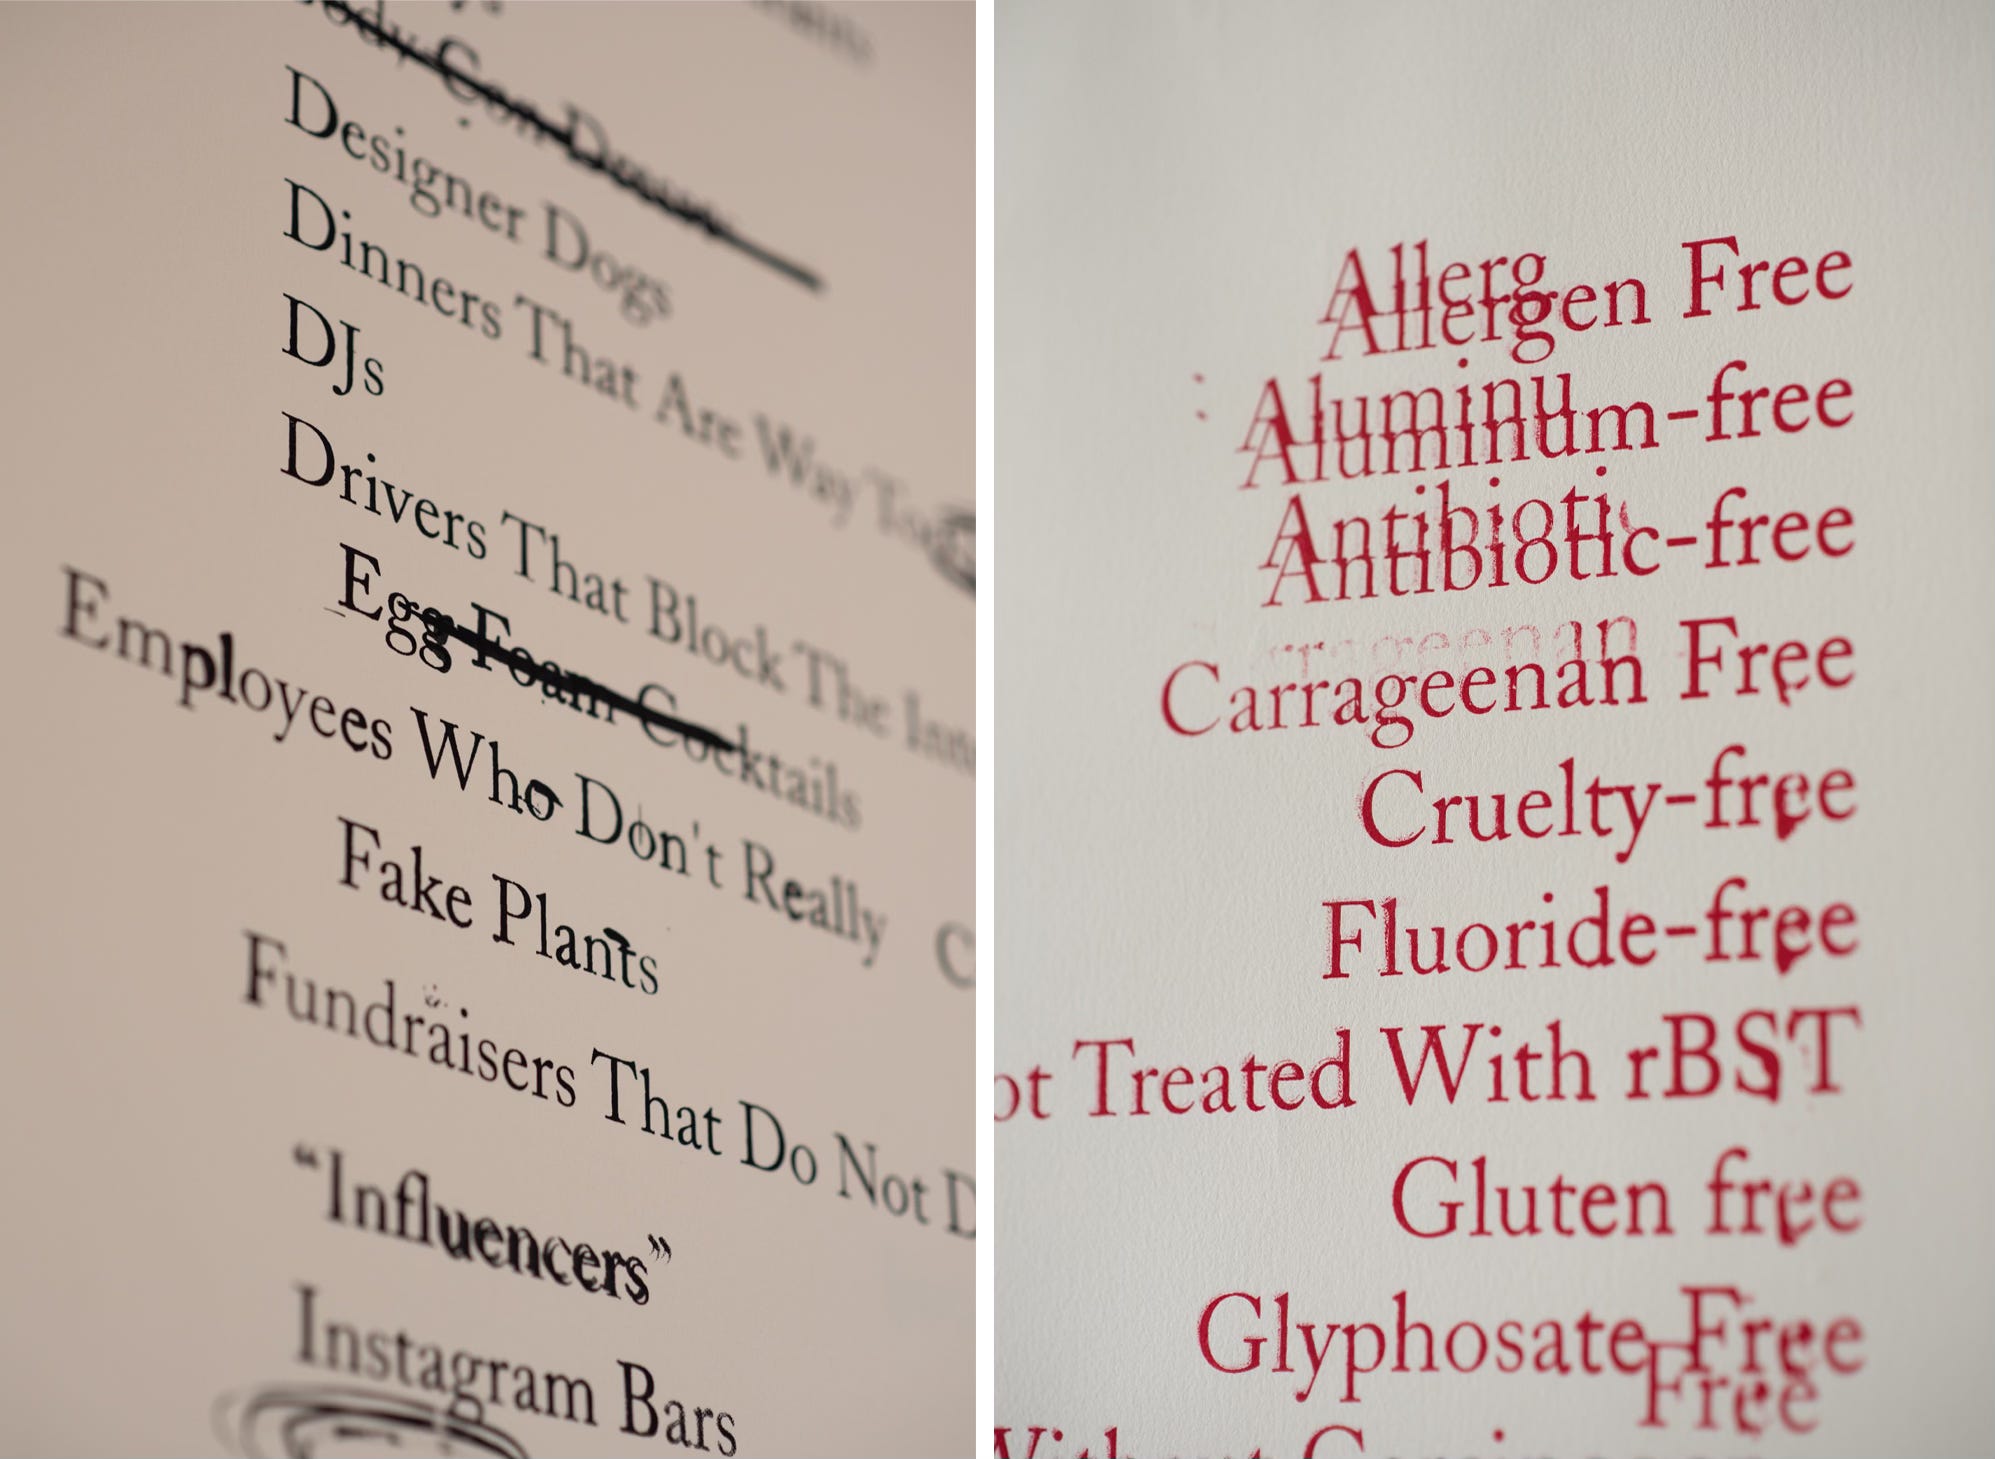 Designer Dogs
Dinners That Are Way Too
DJs
Drivers That Block The
Egg Foam Cocktails
Employees Who Don't Really
Fake Plants
Fundraisers That Do Not
“Influencers”
Instagram Bars
Allerg
Allergen Free
Aluminu
Aluminum-free
Antibioti
Antibiotic-free
rrageenan
Carrageenan Free
Cruelty-free
Fluoride-free
ot Treated With rBST
Gluten free
Glyphosate Free
Free